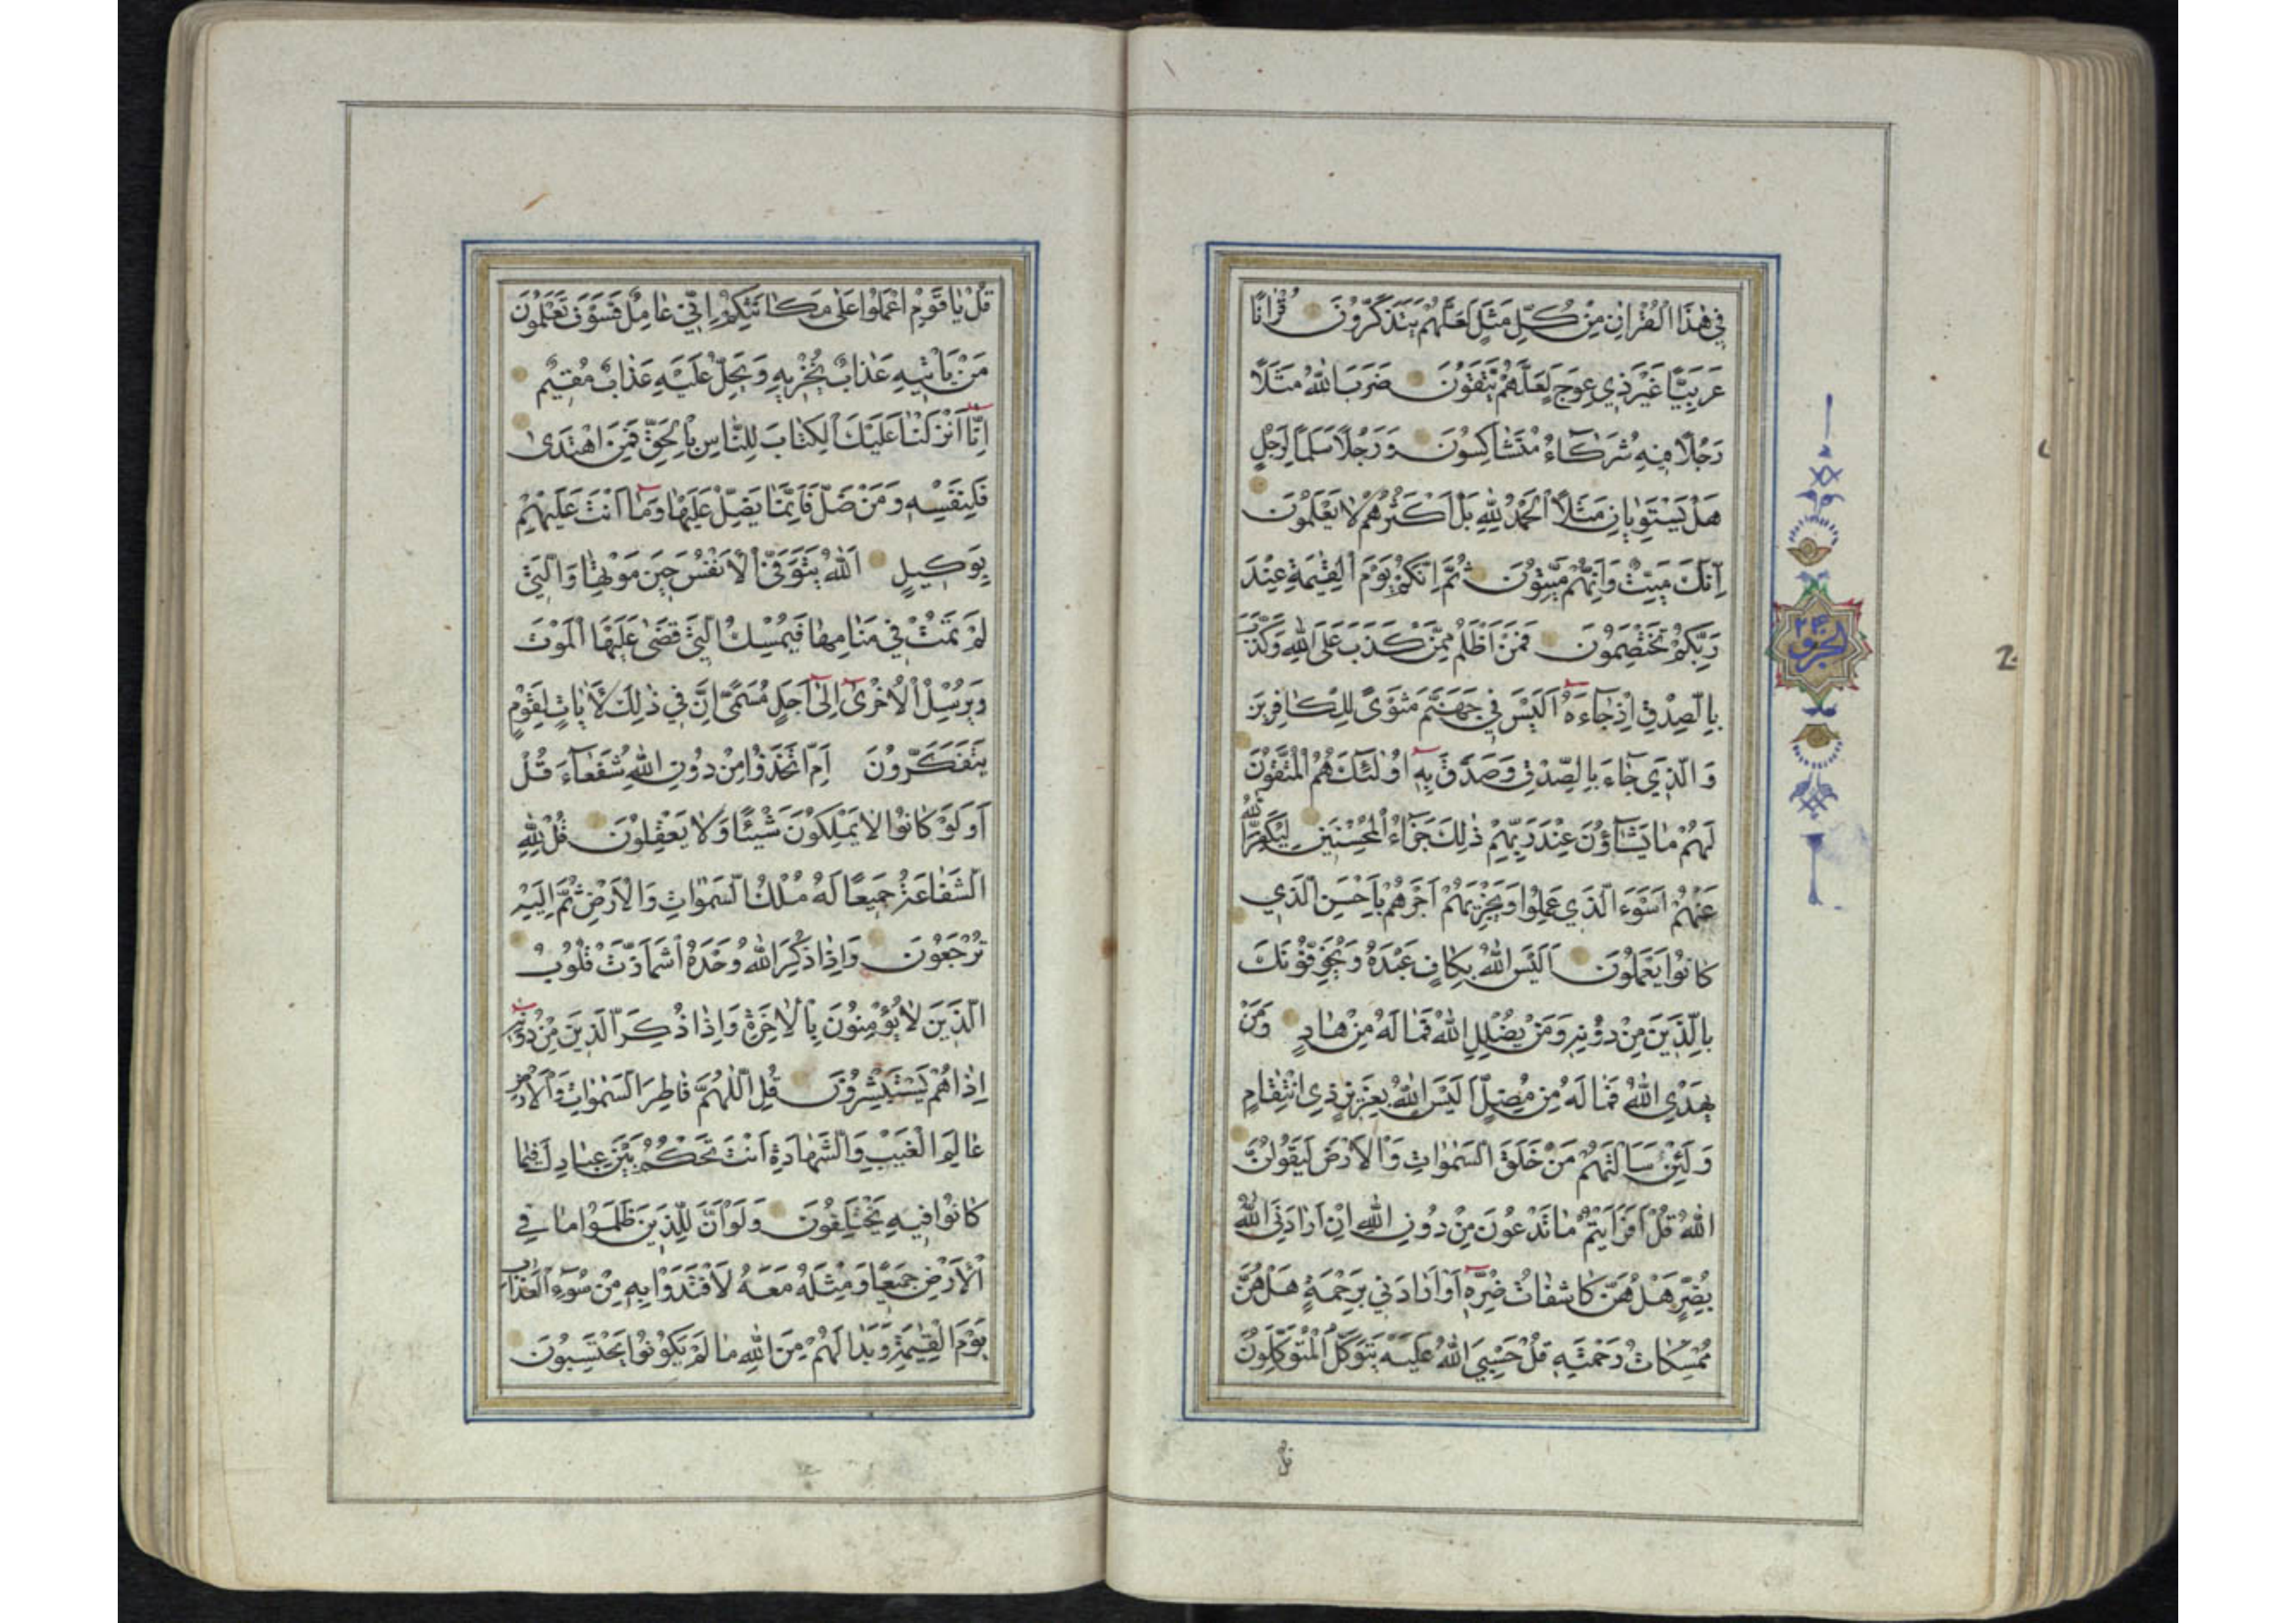 في هٰذَا الْقُرْاٰنِ مِنْ كُلِّ مَثَلٍ لَعَلَّهُمْ يَتَذَكَّرُونَ قُرْاٰنًا
عَرَبِيًّا غَيْرَ ذِي عِوَجٍ لَعَلَّهُمْ يَتَّقُونَ ضَرَبَ اللّٰهُ مَثَلًا
رَجُلًا فِيهِ شُرَكَآءُ مُتَشَاكِسُونَ وَرَجُلًا سَلَمًا لِرَجُلٍ
هَلْ يَسْتَوِيَانِ مَثَلًا اَلْحَمْدُ لِلّٰهِ بَلْ اَكْثَرُهُمْ لَا يَعْلَمُونَ
اِنَّكَ مَيِّتٌ وَاِنَّهُمْ مَيِّتُونَ ثُمَّ اِنَّكُمْ يَوْمَ الْقِيٰمَةِ عِنْدَ
رَبِّكُمْ تَخْتَصِمُونَ فَمَنْ اَظْلَمُ مِمَّنْ كَذَبَ عَلَى اللّٰهِ وَكَذَّبَ
بِالصِّدْقِ اِذْ جَآءَهُ اَلَيْسَ فِي جَهَنَّمَ مَثْوًى لِلْكَافِرِينَ
وَالَّذِي جَآءَ بِالصِّدْقِ وَصَدَّقَ بِهِ اُولٰئِكَ هُمُ الْمُتَّقُونَ
لَهُمْ مَا يَشَآؤُنَ عِنْدَ رَبِّهِمْ ذٰلِكَ جَزَآءُ الْمُحْسِنِينَ لِيُكَفِّرَ اللّٰهُ
عَنْهُمْ اَسْوَءَ الَّذِي عَمِلُوا وَيَجْزِيَهُمْ اَجْرَهُمْ بِاَحْسَنِ الَّذِي
كَانُوا يَعْمَلُونَ اَلَيْسَ اللّٰهُ بِكَافٍ عَبْدَهُ وَيُخَوِّفُونَكَ
بِالَّذِينَ مِنْ دُونِهِ وَمَنْ يُضْلِلِ اللّٰهُ فَمَا لَهُ مِنْ هَادٍ وَمَنْ
يَهْدِي اللّٰهُ فَمَا لَهُ مِنْ مُضِلٍّ اَلَيْسَ اللّٰهُ بِعَزِيزٍ ذِي انْتِقَامٍ
وَلَئِنْ سَاَلْتَهُمْ مَنْ خَلَقَ السَّمٰوَاتِ وَالْاَرْضَ لَيَقُولُنَّ
اللّٰهُ قُلْ اَفَرَاَيْتُمْ مَا تَدْعُونَ مِنْ دُونِ اللّٰهِ اِنْ اَرَادَنِيَ اللّٰهُ
بِضُرٍّ هَلْ هُنَّ كَاشِفَاتُ ضُرِّهِ اَوْ اَرَادَنِي بِرَحْمَةٍ هَلْ هُنَّ
مُمْسِكَاتُ رَحْمَتِهِ قُلْ حَسْبِيَ اللّٰهُ عَلَيْهِ يَتَوَكَّلُ الْمُتَوَكِّلُونَ
قل
الجزو
٢٤
قُلْ يَا قَوْمِ اعْمَلُوا عَلٰى مَكَانَتِكُمْ اِنِّي عَامِلٌ فَسَوْفَ تَعْلَمُونَ
مَنْ يَأْتِيهِ عَذَابٌ يُخْزِيهِ وَيَحِلُّ عَلَيْهِ عَذَابٌ مُقِيمٌ
اِنَّا اَنْزَلْنَا عَلَيْكَ الْكِتَابَ لِلنَّاسِ بِالْحَقِّ فَمَنِ اهْتَدٰى
فَلِنَفْسِهِ وَمَنْ ضَلَّ فَاِنَّمَا يَضِلُّ عَلَيْهَا وَمَا اَنْتَ عَلَيْهِمْ
بِوَكِيلٍ اَللّٰهُ يَتَوَفَّى الْاَنْفُسَ حِينَ مَوْتِهَا وَالَّتِي
لَمْ تَمُتْ فِي مَنَامِهَا فَيُمْسِكُ الَّتِي قَضٰى عَلَيْهَا الْمَوْتَ
وَيُرْسِلُ الْاُخْرٰى اِلٰى اَجَلٍ مُسَمًّى اِنَّ فِي ذٰلِكَ لَاٰيَاتٍ لِقَوْمٍ
يَتَفَكَّرُونَ اَمِ اتَّخَذُوا مِنْ دُونِ اللّٰهِ شُفَعَآءَ قُلْ
اَوَلَوْ كَانُوا لَا يَمْلِكُونَ شَيْئًا وَلَا يَعْقِلُونَ قُلْ لِلّٰهِ
الشَّفَاعَةُ جَمِيعًا لَهُ مُلْكُ السَّمٰوَاتِ وَالْاَرْضِ ثُمَّ اِلَيْهِ
تُرْجَعُونَ وَاِذَا ذُكِرَ اللّٰهُ وَحْدَهُ اشْمَأَزَّتْ قُلُوبُ
الَّذِينَ لَا يُؤْمِنُونَ بِالْاٰخِرَةِ وَاِذَا ذُكِرَ الَّذِينَ مِنْ دُونِهِ
اِذَا هُمْ يَسْتَبْشِرُونَ قُلِ اللّٰهُمَّ فَاطِرَ السَّمٰوَاتِ وَالْاَرْضِ
عَالِمَ الْغَيْبِ وَالشَّهَادَةِ اَنْتَ تَحْكُمُ بَيْنَ عِبَادِكَ فِيمَا
كَانُوا فِيهِ يَخْتَلِفُونَ وَلَوْ اَنَّ لِلَّذِينَ ظَلَمُوا مَا فِي
الْاَرْضِ جَمِيعًا وَمِثْلَهُ مَعَهُ لَافْتَدَوْا بِهِ مِنْ سُوٓءِ الْعَذَابِ
يَوْمَ الْقِيٰمَةِ وَبَدَا لَهُمْ مِنَ اللّٰهِ مَا لَمْ يَكُونُوا يَحْتَسِبُونَ